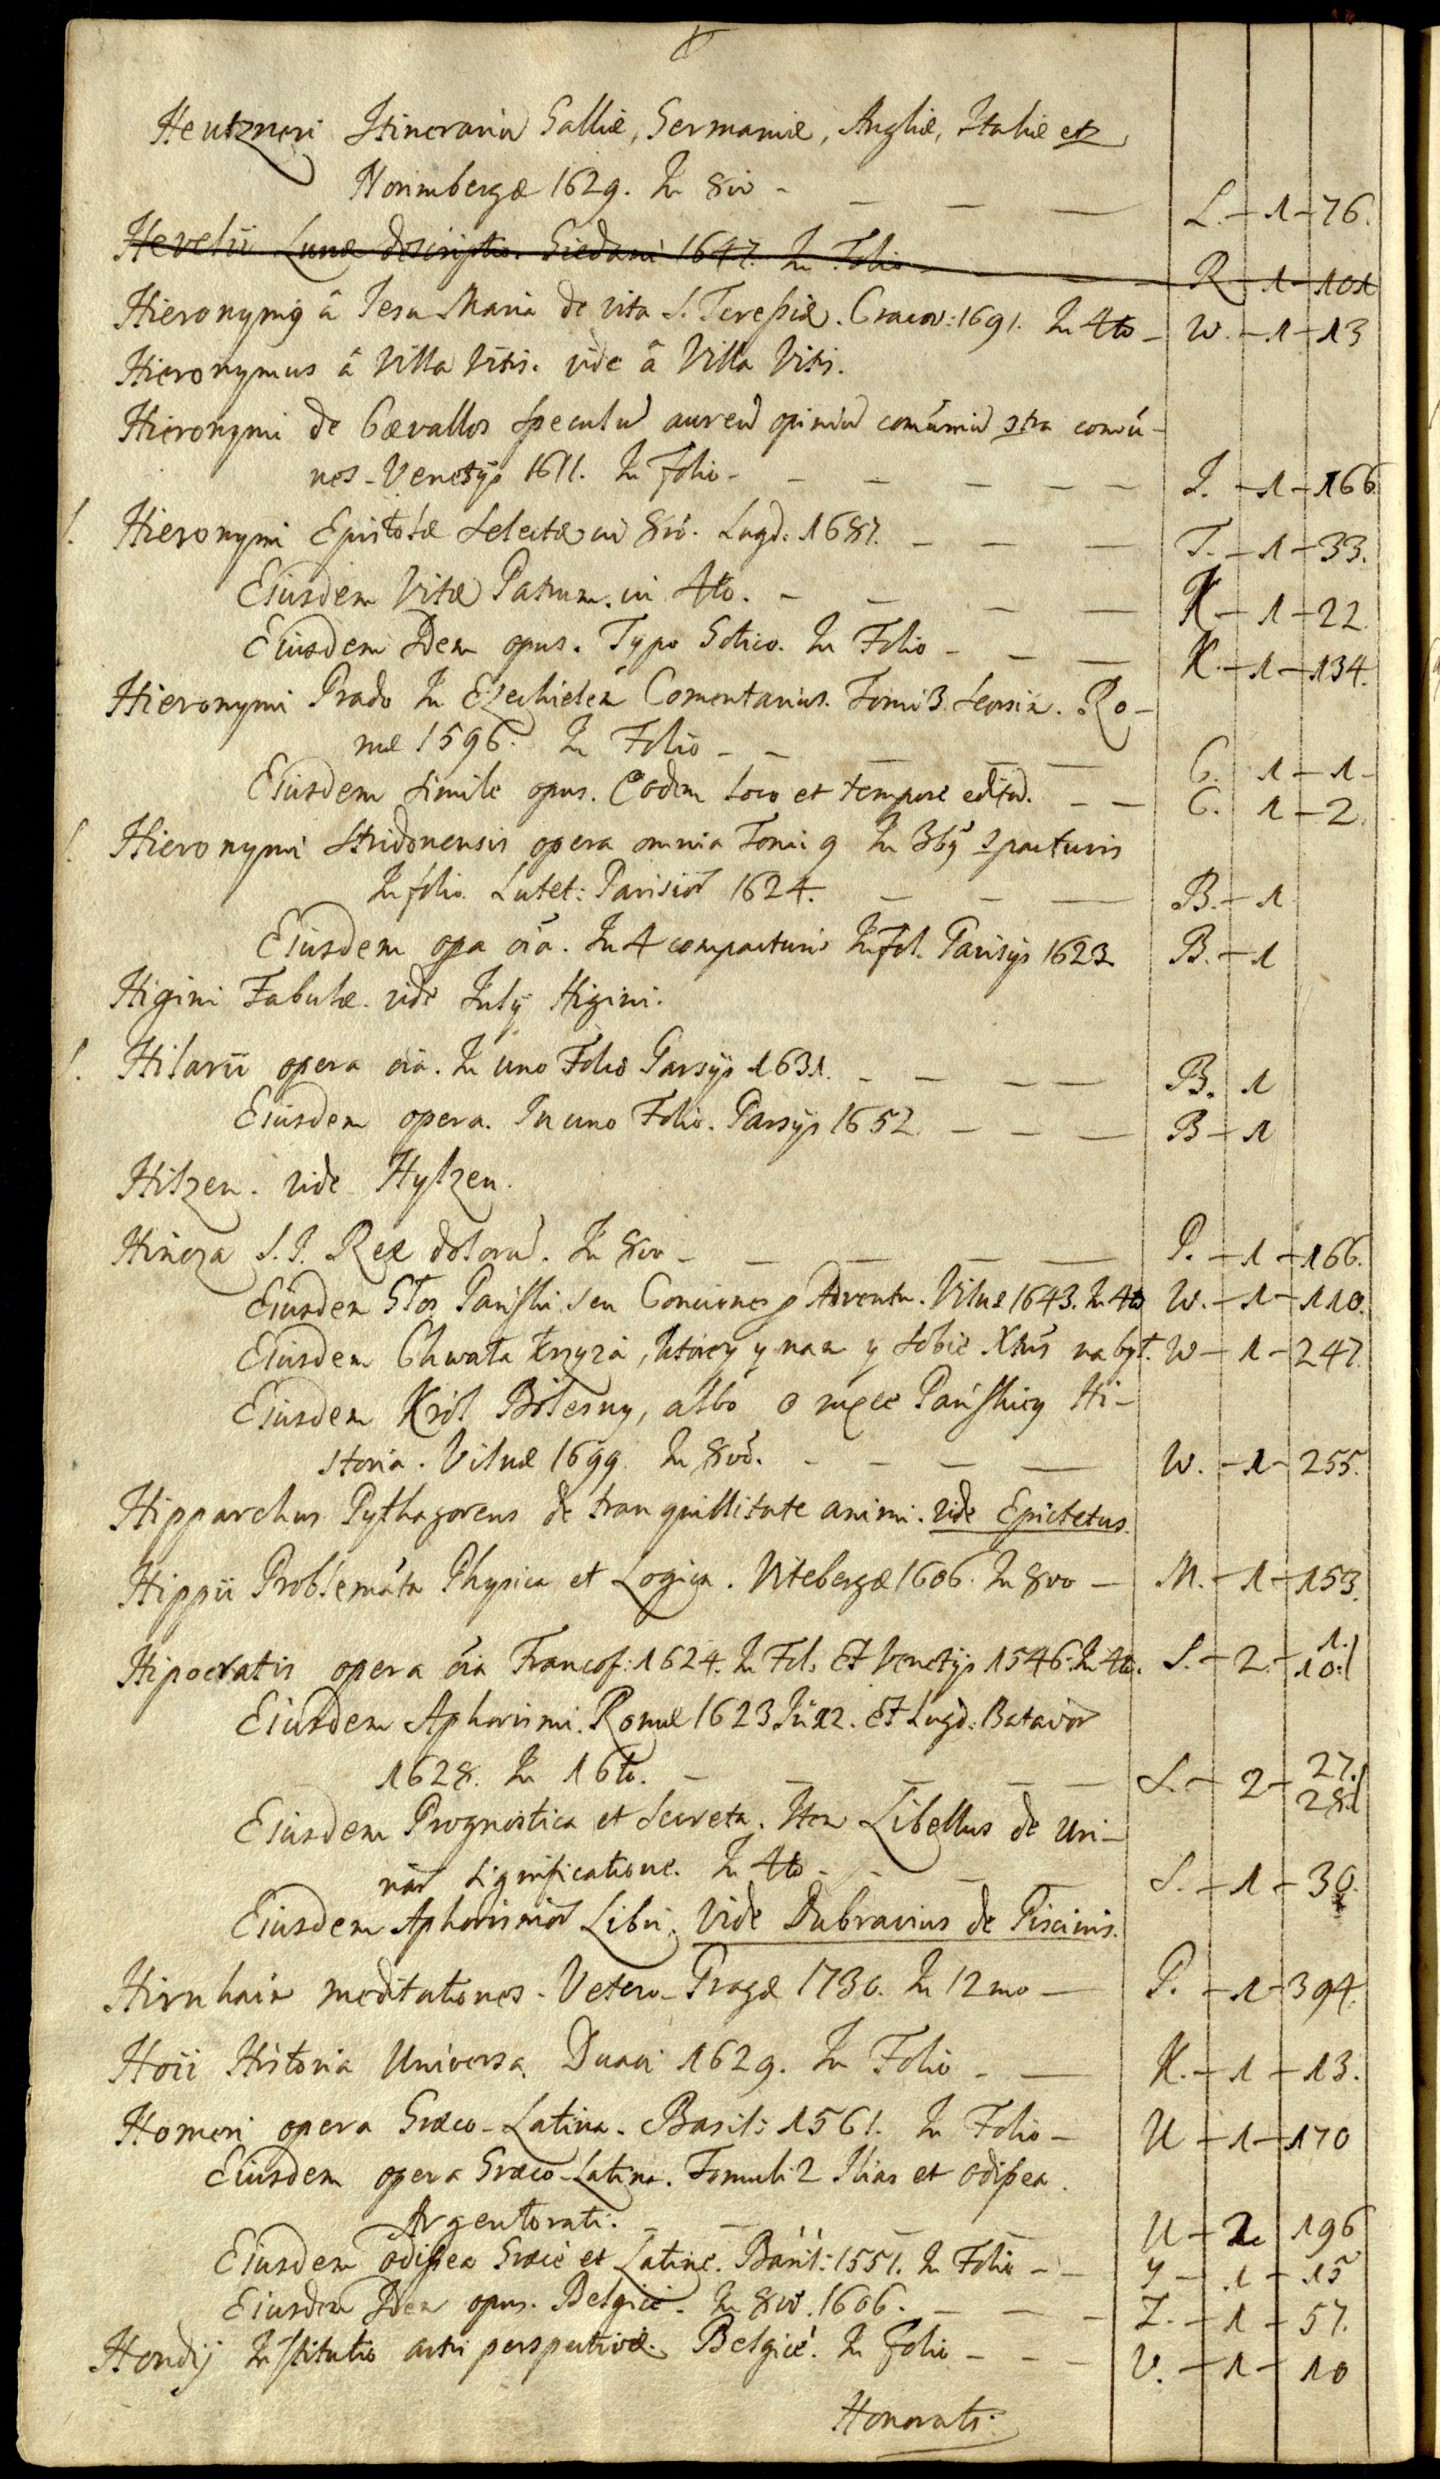 Heutzneri Itineraria Galliæ, Germaniæ, Angliæ, Italiæ etz
Norimbergæ 1629. In 8vo - L. - 1 - 76.
Hevelii Lunæ descriptio. Giedani 1647. In Folio R - 1 - 101
Hieronymꝯ â Jesu Maria de vita S. Teressiæ. Cracov: 1691. In 4to - W. - 1 - 13
Hieronymus â Villa Vitis. vide â Villa Vitis.
Hieronymi de Cævallos speculū aureū opiniū comūniū ꝯtra comū-
nes. Venetijs 1611. In folio - J. - 1 - 166
S. Hieronymi Epistolæ selectæ in 8vo. Lugd: 1687. T. - 1 - 33.
Eiusdem Vitæ Patrum. in 4to. - K - 1 - 22.
Eiusdem Idem opus. Typo Gotico. In Folio - K. - 1 - 134.
Hieronymi Prado In Ezechielem Comentarius. Tomi 3. seorsim. Ro-
mæ 1596. In Folio - C. 1 - 1 -
Eiusdem simile opus. Eodem loco et tempore editū. - C. 1 - 2.
S. Hieronymi Stridonensis opera omnia Tomi 9 In 3bꝯ ꝯpacturis
In folio. Lutet: Parisior 1624. B. - 1
Eiusdem opa oia. In 4 compacturis In Fol. Parisijs 1623. B. - 1
Higini Fabulæ. vide Julij Higini.
S. Hilarii opera oia. In uno Folio Parsijs 1631. B. 1
Eiusdem opera. In uno Folio. Parsijs 1652. B - 1
Hilzen. vide Hylzen.
Hincza S. J. Rex dolorū. In 8vo - P. - 1 - 166.
Eiusdem Głos Pański seu Conciones p Adventu. Vilnæ 1643. In 4to W. - 1 - 110.
Eiusdem Chwała krzyża, ktorey y nam y sobie Xtus nabył. W - 1 - 247.
Eiusdem Król Bolesny, albo o męce Pańskiey Hi-
storia. Vilnæ 1699. In 8vo. - W. - 1 - 255.
Hipparchus Pythagoreus de tranquillitate animi. vide Epictetus.
Hippii Problemata Physica et Logica. Vitebergæ 1606. In 8vo - M. - 1 - 153.
Hipocratis opera oia Francof: 1624. In Fol. Et Venetijs 1546. In 4to. S. - 2. - 1. 10.
Eiusdem Aphorismi. Romæ 1623 In 12. Et Lugd: Batavor
1628. In 16to. - S. - 2 - 27. 28.
Eiusdem Prognostica et secreta. Item Libellus de Uri-
nar significatione. In 4to - S. - 1 - 30.
Eiusdem Aphorismor Libri. Vide Dubravius de Piscinis.
Hirnhaim meditationes. Vetero-Pragæ 1730. In 12mo - P. - 1 - 394.
Hoii Historia Universa. Duaci 1629. In Folio - K. - 1 - 13.
Homeri opera Græco-Latina. Basil: 1561. In Folio - U - 1 - 170
Eiusdem opera Græco-Latina. Tomuli 2 Ilias et odissea.
Argentorati. - U - 2 196
Eiusdem odissea Græce et Latine. Basil: 1551. In Folio - Y - 1 - 15
Eiusdem Idem opus. Belgice. In 8vo. 1606. - Z. - 1 - 57.
Hondij Institutio artis perspectivæ. Belgice. In folio - V. - 1 - 10
Honorati